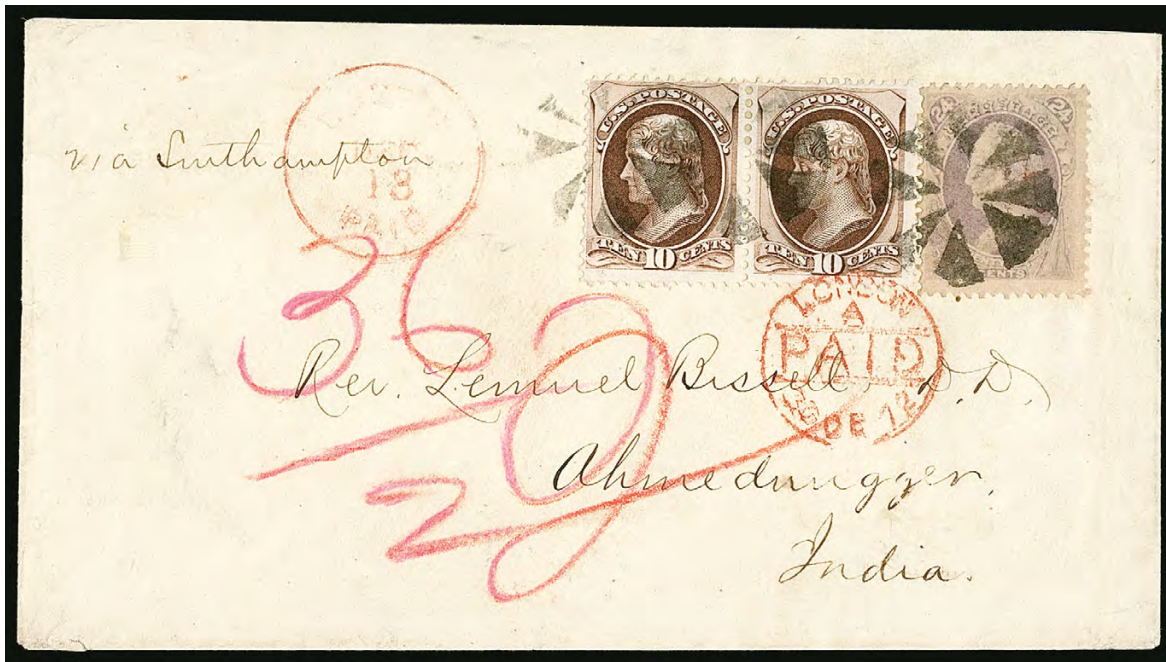 via Southampton
18
PAID
U.S. POSTAGE
TEN 10 CENTS
U.S. POSTAGE
TEN 10 CENTS
24 24
CENTS
LONDON
A
PAID
DE 72
36
2
Rev. Lemuel Bissell, D.D.
Ahmednugger,
India.